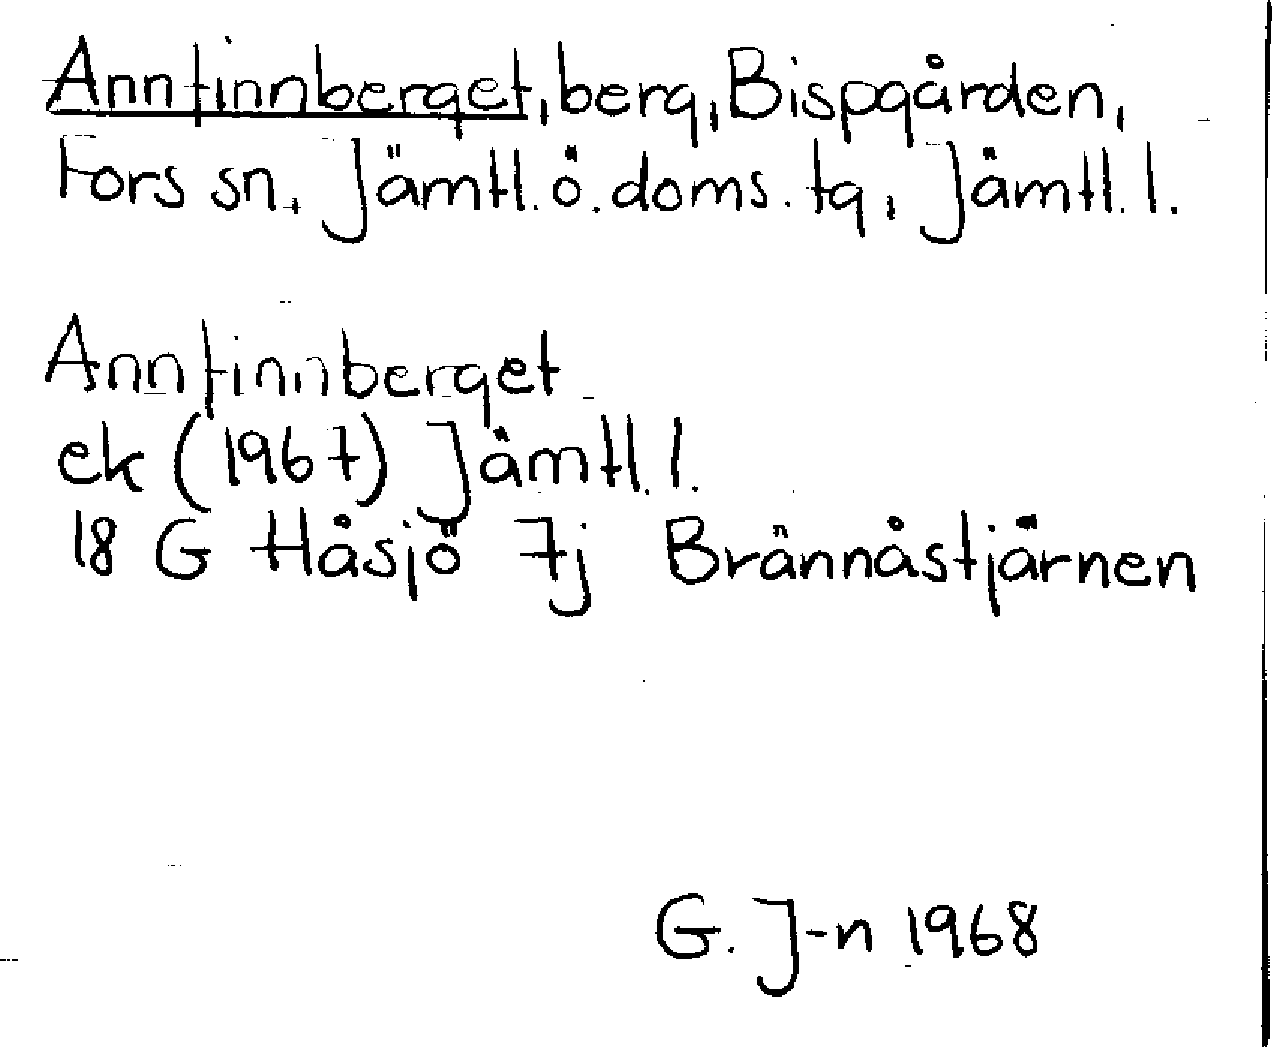 Annfinnberget, berg, Bispgården,
Fors sn, Jämtl. ö. doms. tg, Jämtl. l.
Annfinnberget
ek (1967) Jämtl. l.
18 G Håsjö 7j Brännåstjärnen
G. J-n 1968